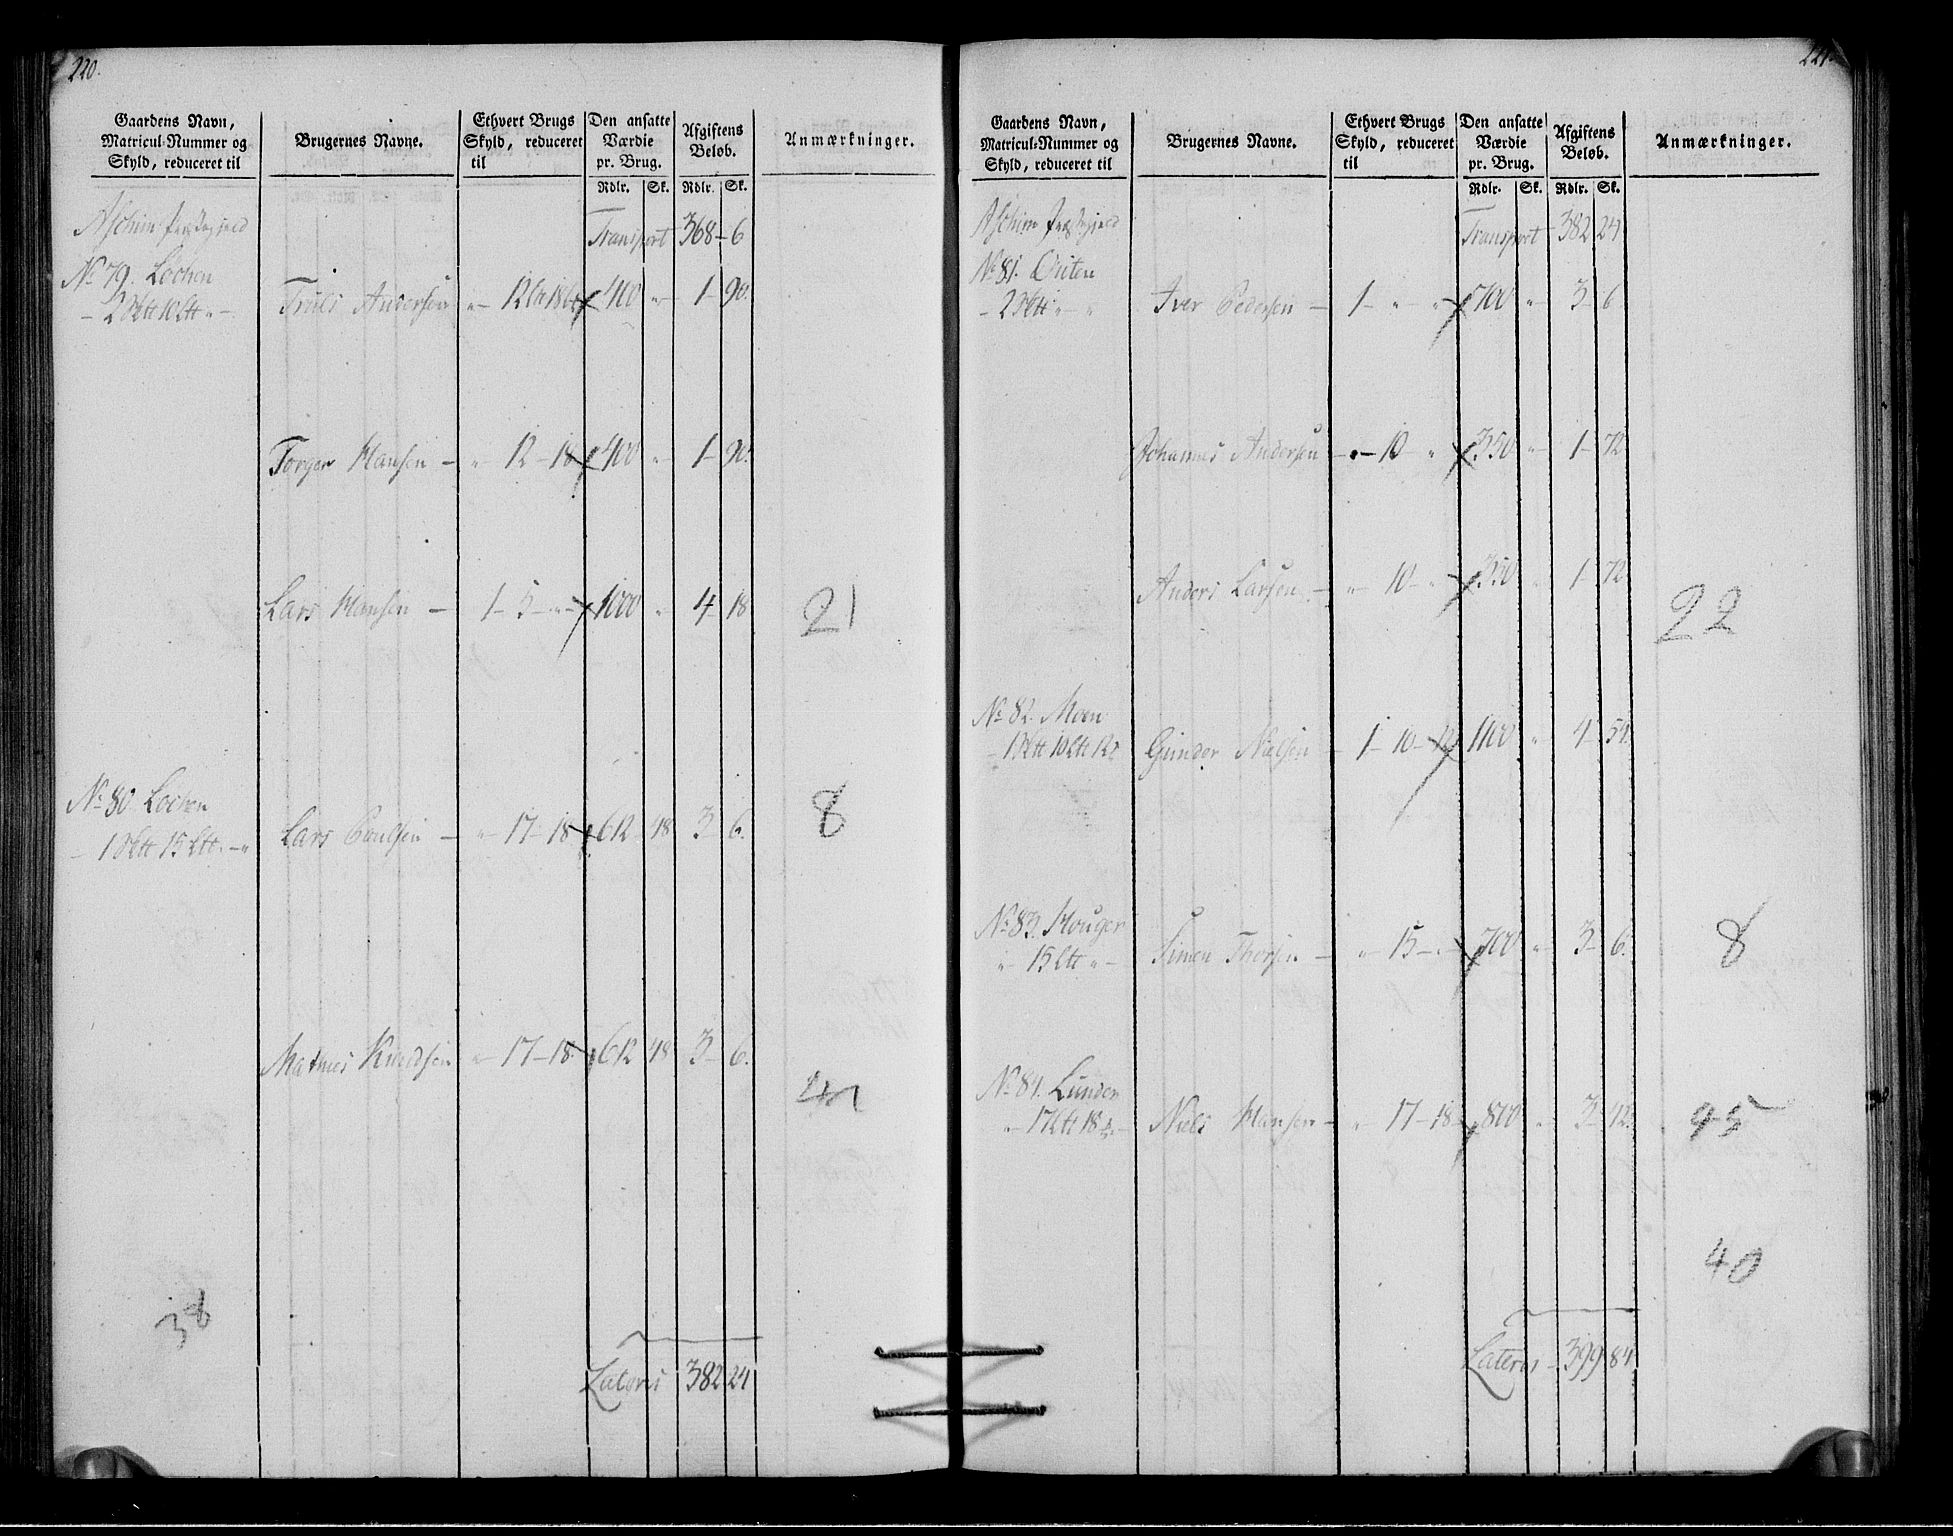 220.
Gaardens Navn, Matricul-Nummer og Skyld, reduceret til
Brugernes Navne.
Ethvert Brugs Skyld, reduceret til
Den ansatte Værdie pr. Brug.
Afgiftens Beløb.
Anmærkninger.
Rdlr. Sk. Rdlr. Sk.
Aschim Præstegjeld
Transport 368 - 6
No 79. Lochen
Truls Andersen 400 " 1 - 90.
Torger Hansen - " 12 - 18 400 " 1 - 90.
Lars Hansen - 1 - 5 - " 1000 " 4 - 18
21
No 80. Lochen
Lars Poulsen - " 17 - 18 612 48 3 - 6.
8
Mathies Knudsen " 17 - 18 612 48 3 - 6.
38
Lateris 382 24
221.
Gaardens Navn, Matricul-Nummer og Skyld, reduceret til
Brugernes Navne.
Ethvert Brugs Skyld, reduceret til
Den ansatte Værdie pr. Brug.
Afgiftens Beløb.
Anmærkninger.
Rdlr. Sk. Rdlr. Sk.
Aschim Præstegjeld
Transport - 382 24
No 81.
Iver Pedersen - 1 - " " 700 " 3 - 6
Johannes Andersen - " - 10 " 350 " 1 - 72
Anders Larsen - " 10 - " 350 " 1 - 72
22
No 82. Moen
Gunder Nielsen - 1 - 10 - 12 1100 " 4 - 54.
No 83. Houger
" 15 Ltt " -
Simen Thorsen - " 15 - " 700 " 3 - 6.
8
No 84. Lunder
" 17 Ltt 18
Niels Hansen - " 17 - 18 800 " 3 - 42.
95
40
Lateris - 399 84